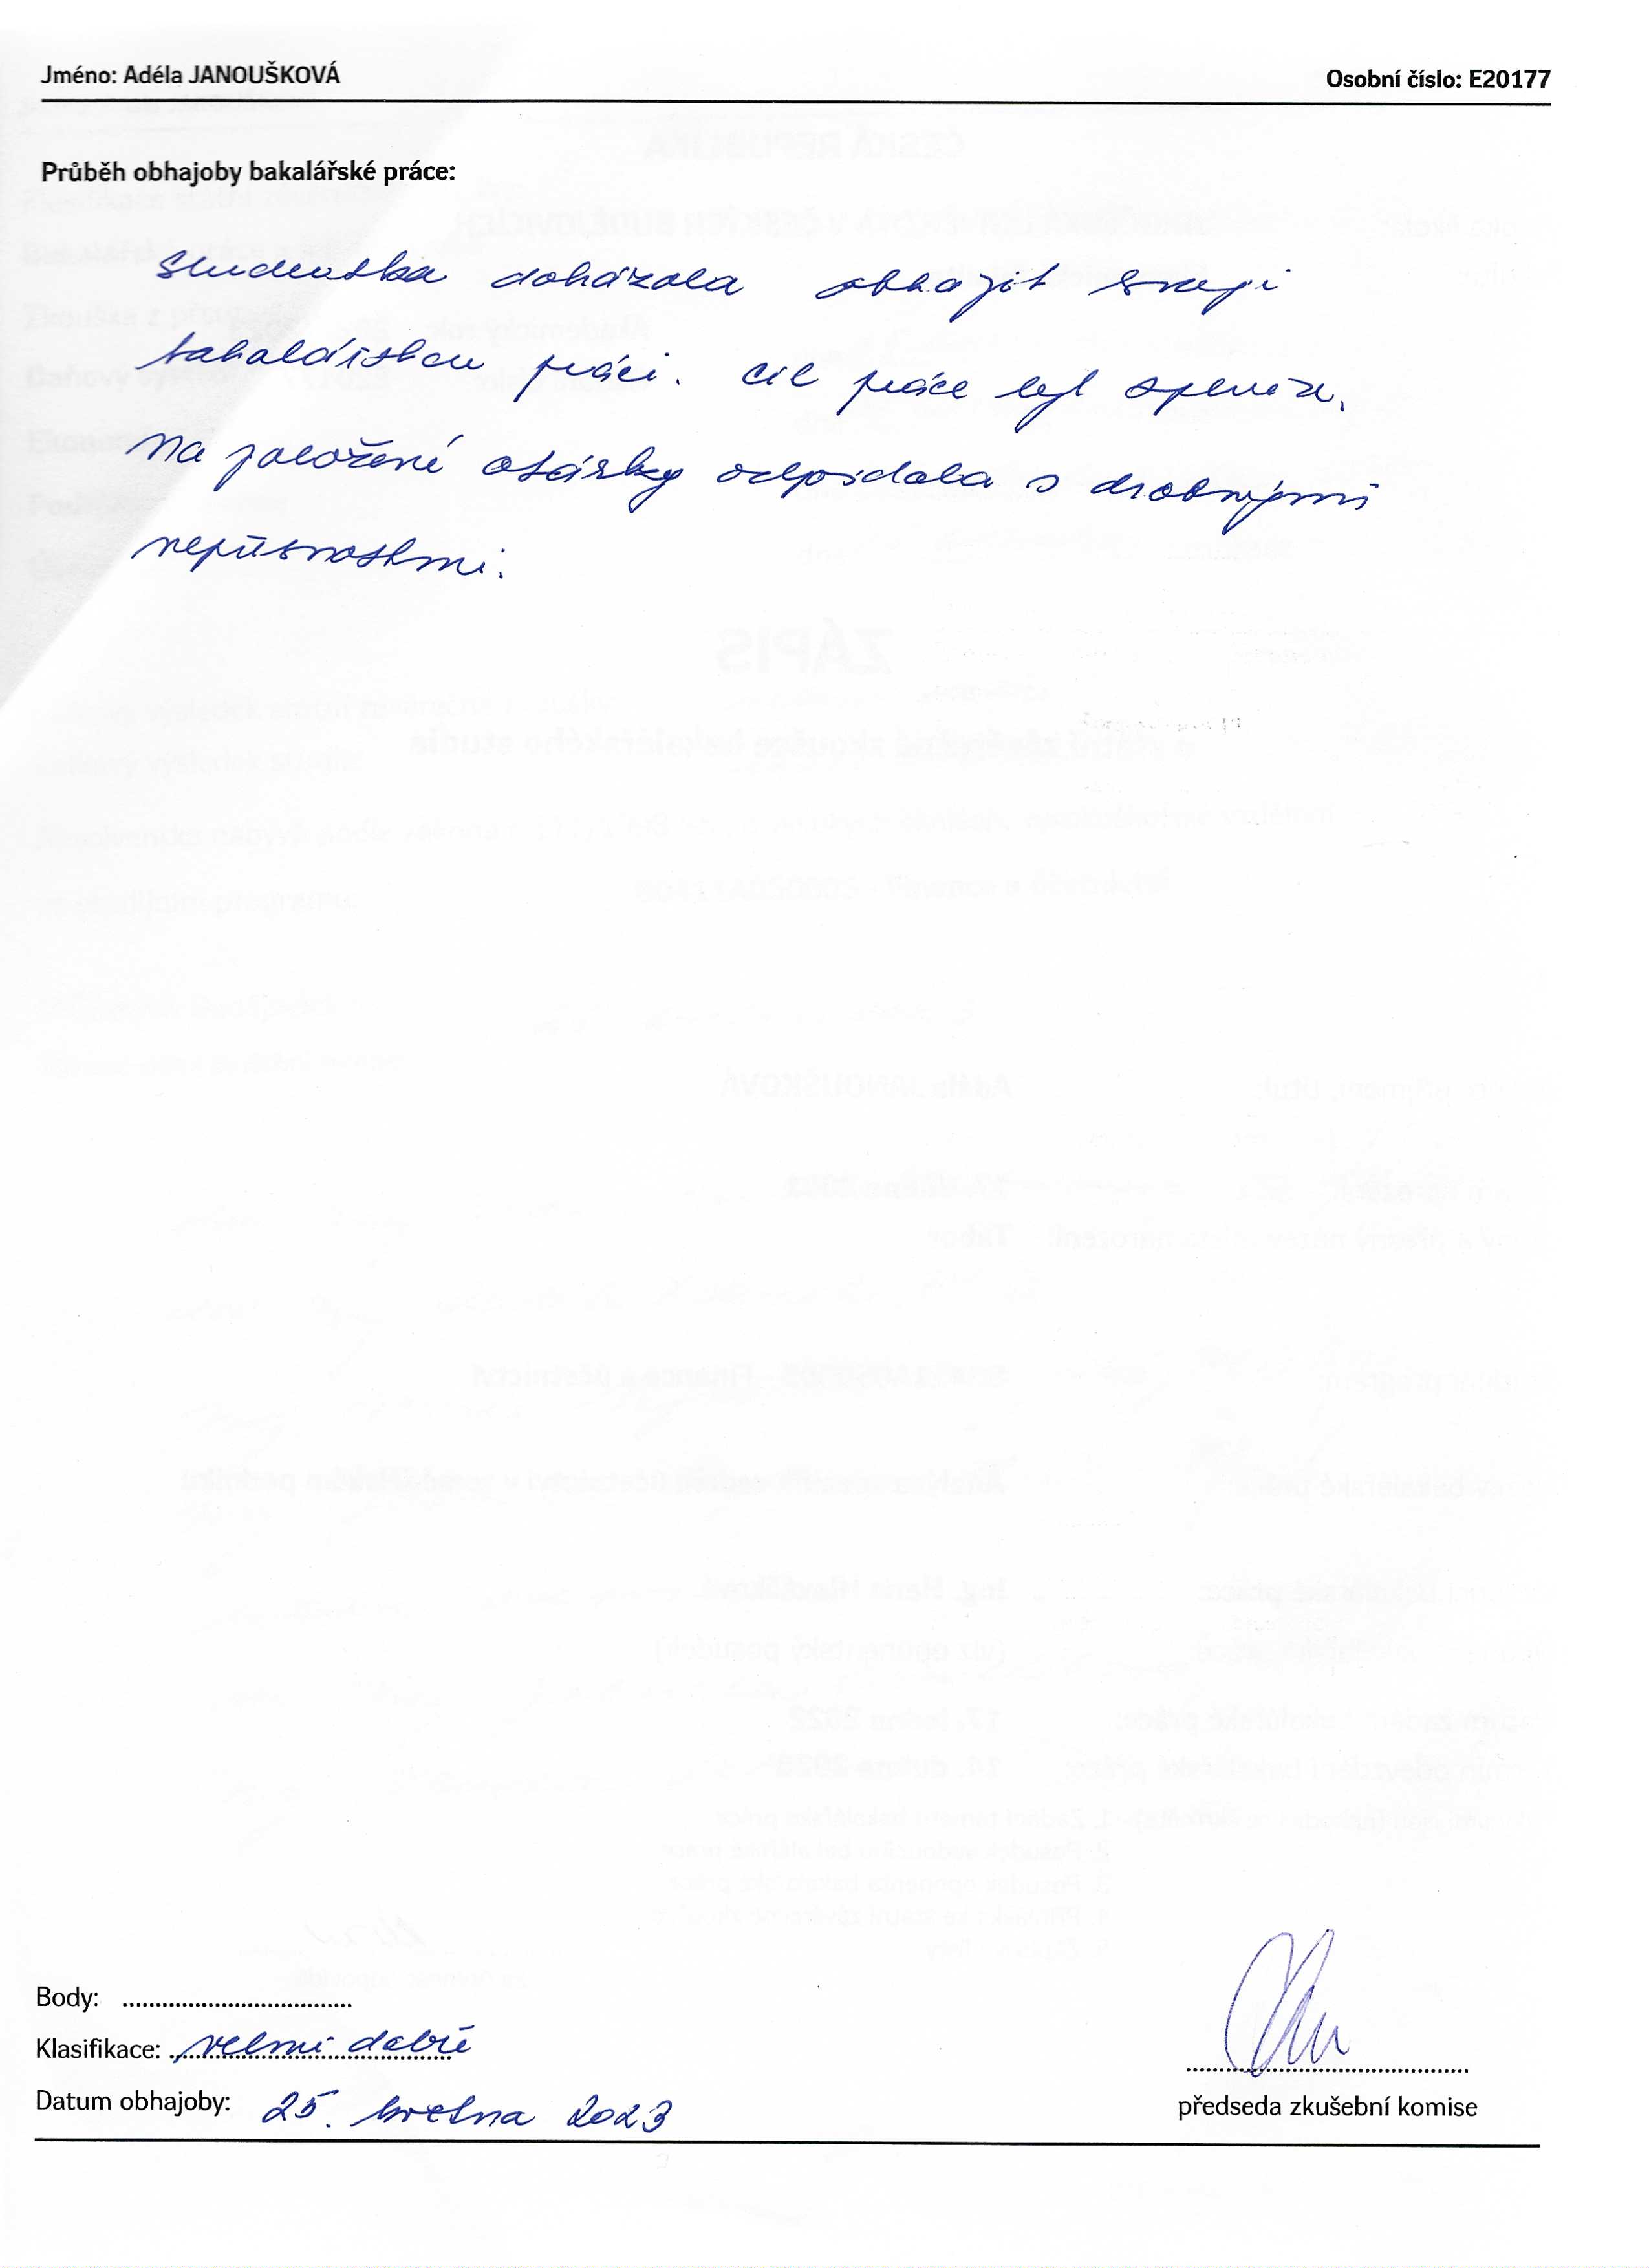 Jméno: Adéla JANOUŠKOVÁ
Osobní číslo: E20177
Průběh obhajoby bakalářské práce:
Studentka dokázala obhájit svoji
bakalářskou práci. Cíl práce byl splněn.
Na položené otázky odpovídala s drobnými
nepřesnostmi.
Body:
Klasifikace: velmi dobře
Datum obhajoby: 25. května 2023
předseda zkušební komise